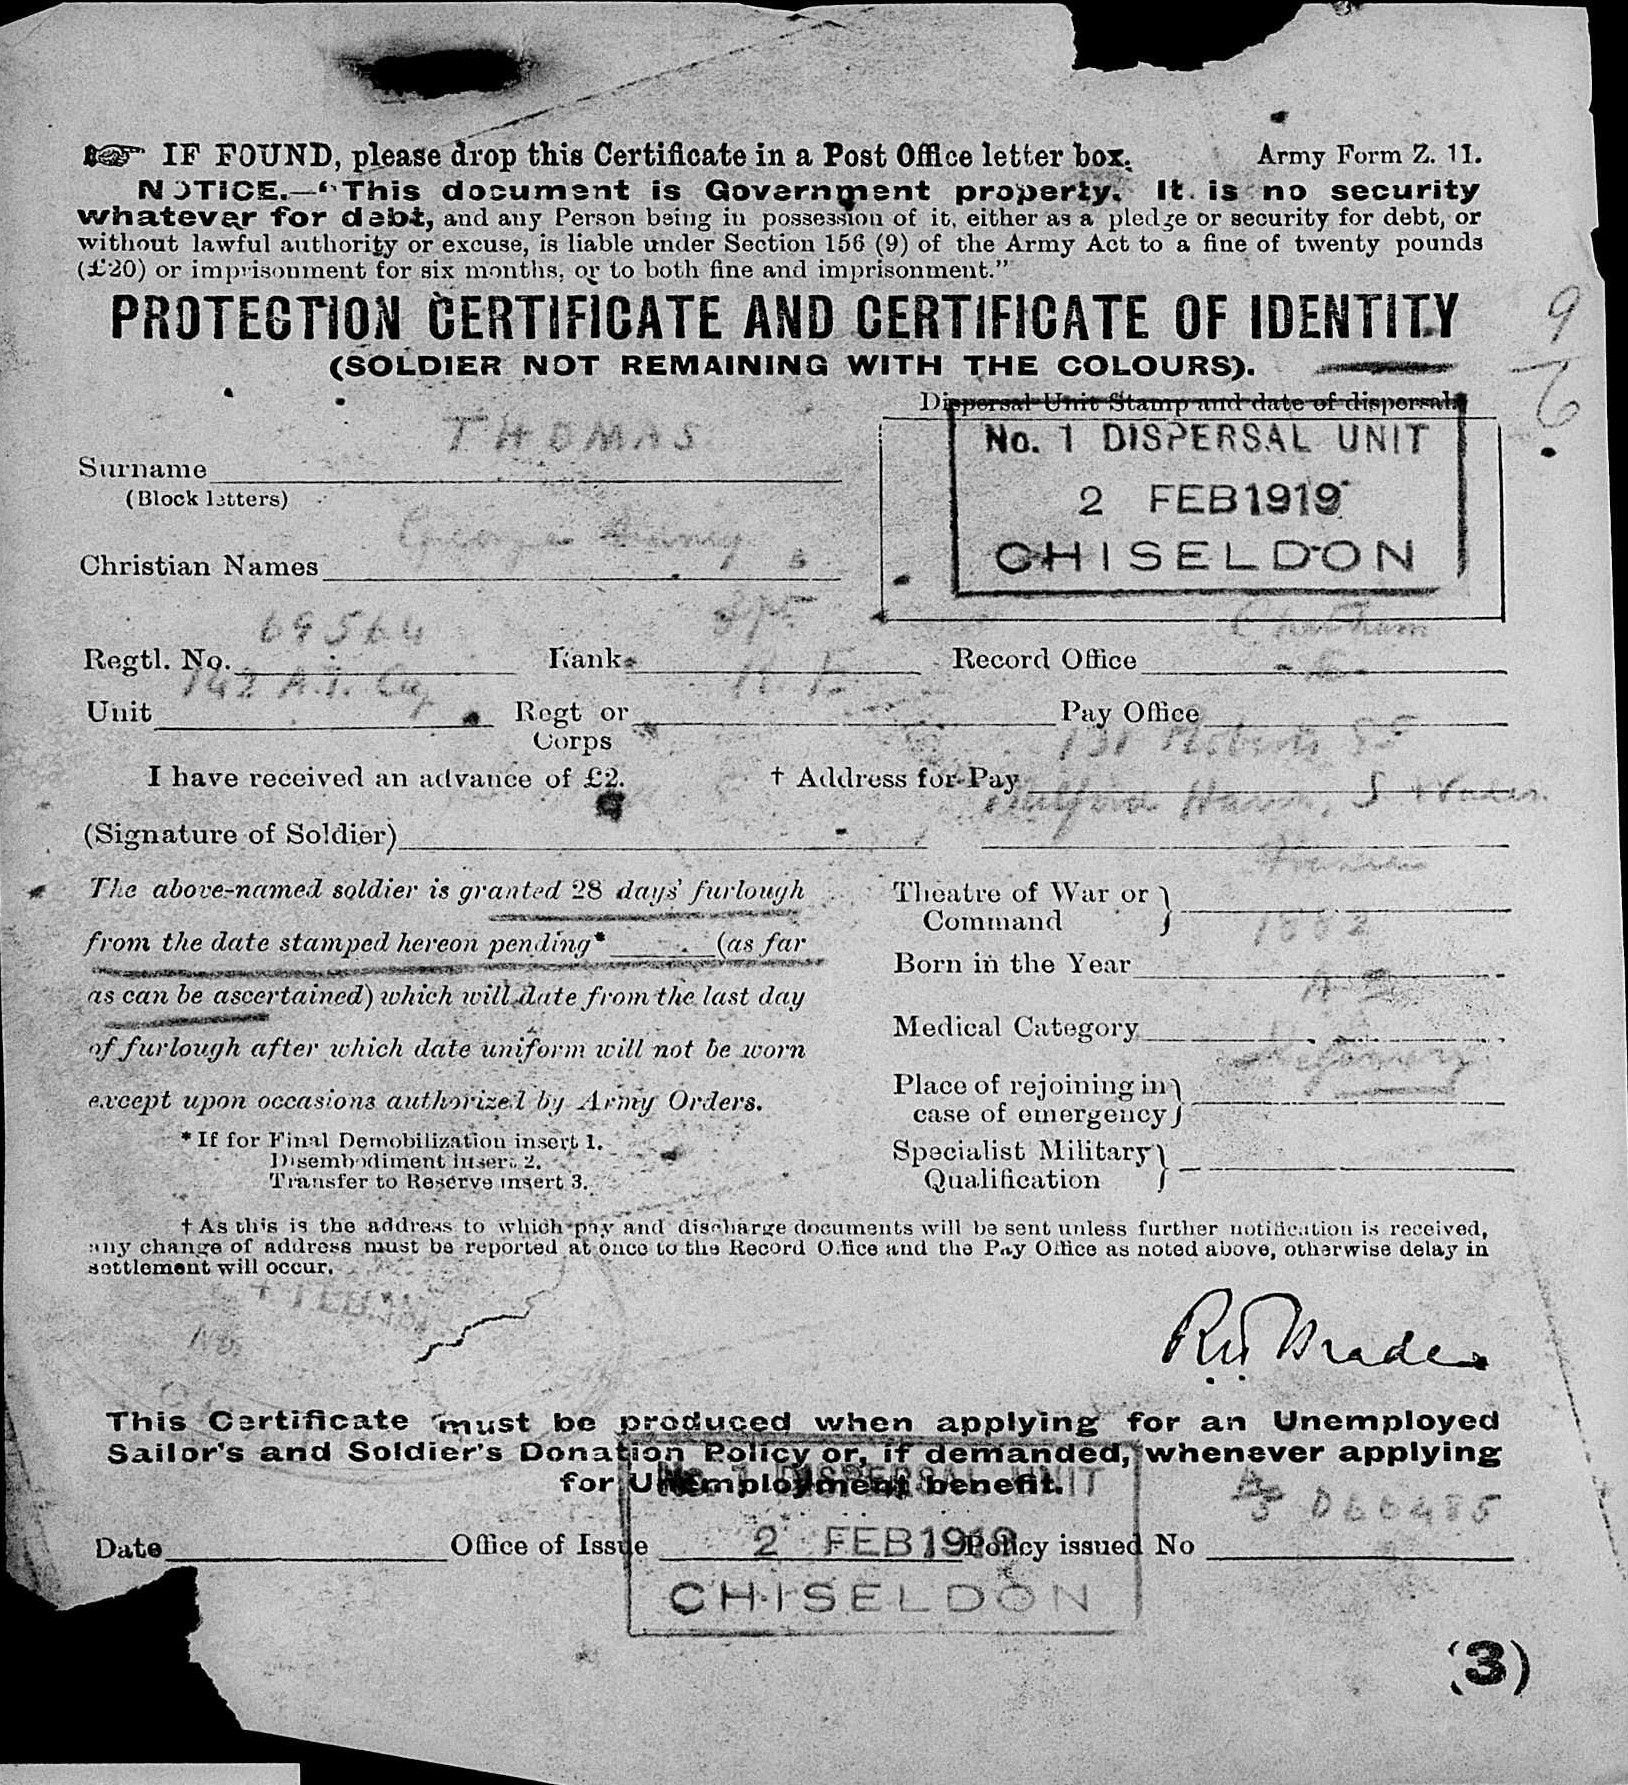 IF FOUND, please drop this Certificate in a Post Office letter box.
Army Form Z. 11.
NOTICE.—"This document is Government property. It is no security
whatever for debt, and any Person being in possession of it, either as a pledge or security for debt, or
without lawful authority or excuse, is liable under Section 156 (9) of the Army Act to a fine of twenty pounds
(£20) or imprisonment for six months, or to both fine and imprisonment."
PROTECTION CERTIFICATE AND CERTIFICATE OF IDENTITY
(SOLDIER NOT REMAINING WITH THE COLOURS).
9
6
Dispersal Unit Stamp and date of dispersal.
No. 1 DISPERSAL UNIT
2 FEB 1919
CHISELDON
Surname THOMAS
(Block letters)
Christian Names George
Regtl. No. 69564 Rank Spr Record Office Chatham
Unit 142 A.T. Coy Regt or Corps R.E. Pay Office
I have received an advance of £2. † Address for Pay 131 Roberts St
Milford Haven, S Wales.
(Signature of Soldier)
The above-named soldier is granted 28 days' furlough
from the date stamped hereon pending* (as far
as can be ascertained) which will date from the last day
of furlough after which date uniform will not be worn
except upon occasions authorized by Army Orders.
* If for Final Demobilization insert 1.
Disembodiment insert 2.
Transfer to Reserve insert 3.
Theatre of War or Command France
Born in the Year 1882
Medical Category
Place of rejoining in case of emergency
Specialist Military Qualification
† As this is the address to which pay and discharge documents will be sent unless further notification is received,
any change of address must be reported at once to the Record Office and the Pay Office as noted above, otherwise delay in
settlement will occur.
This Certificate must be produced when applying for an Unemployed
Sailor's and Soldier's Donation Policy or, if demanded, whenever applying
for Unemployment benefit.
No. 1 DISPERSAL UNIT
2 FEB 1919
CHISELDON
Date Office of Issue Policy issued No 066485
(3)